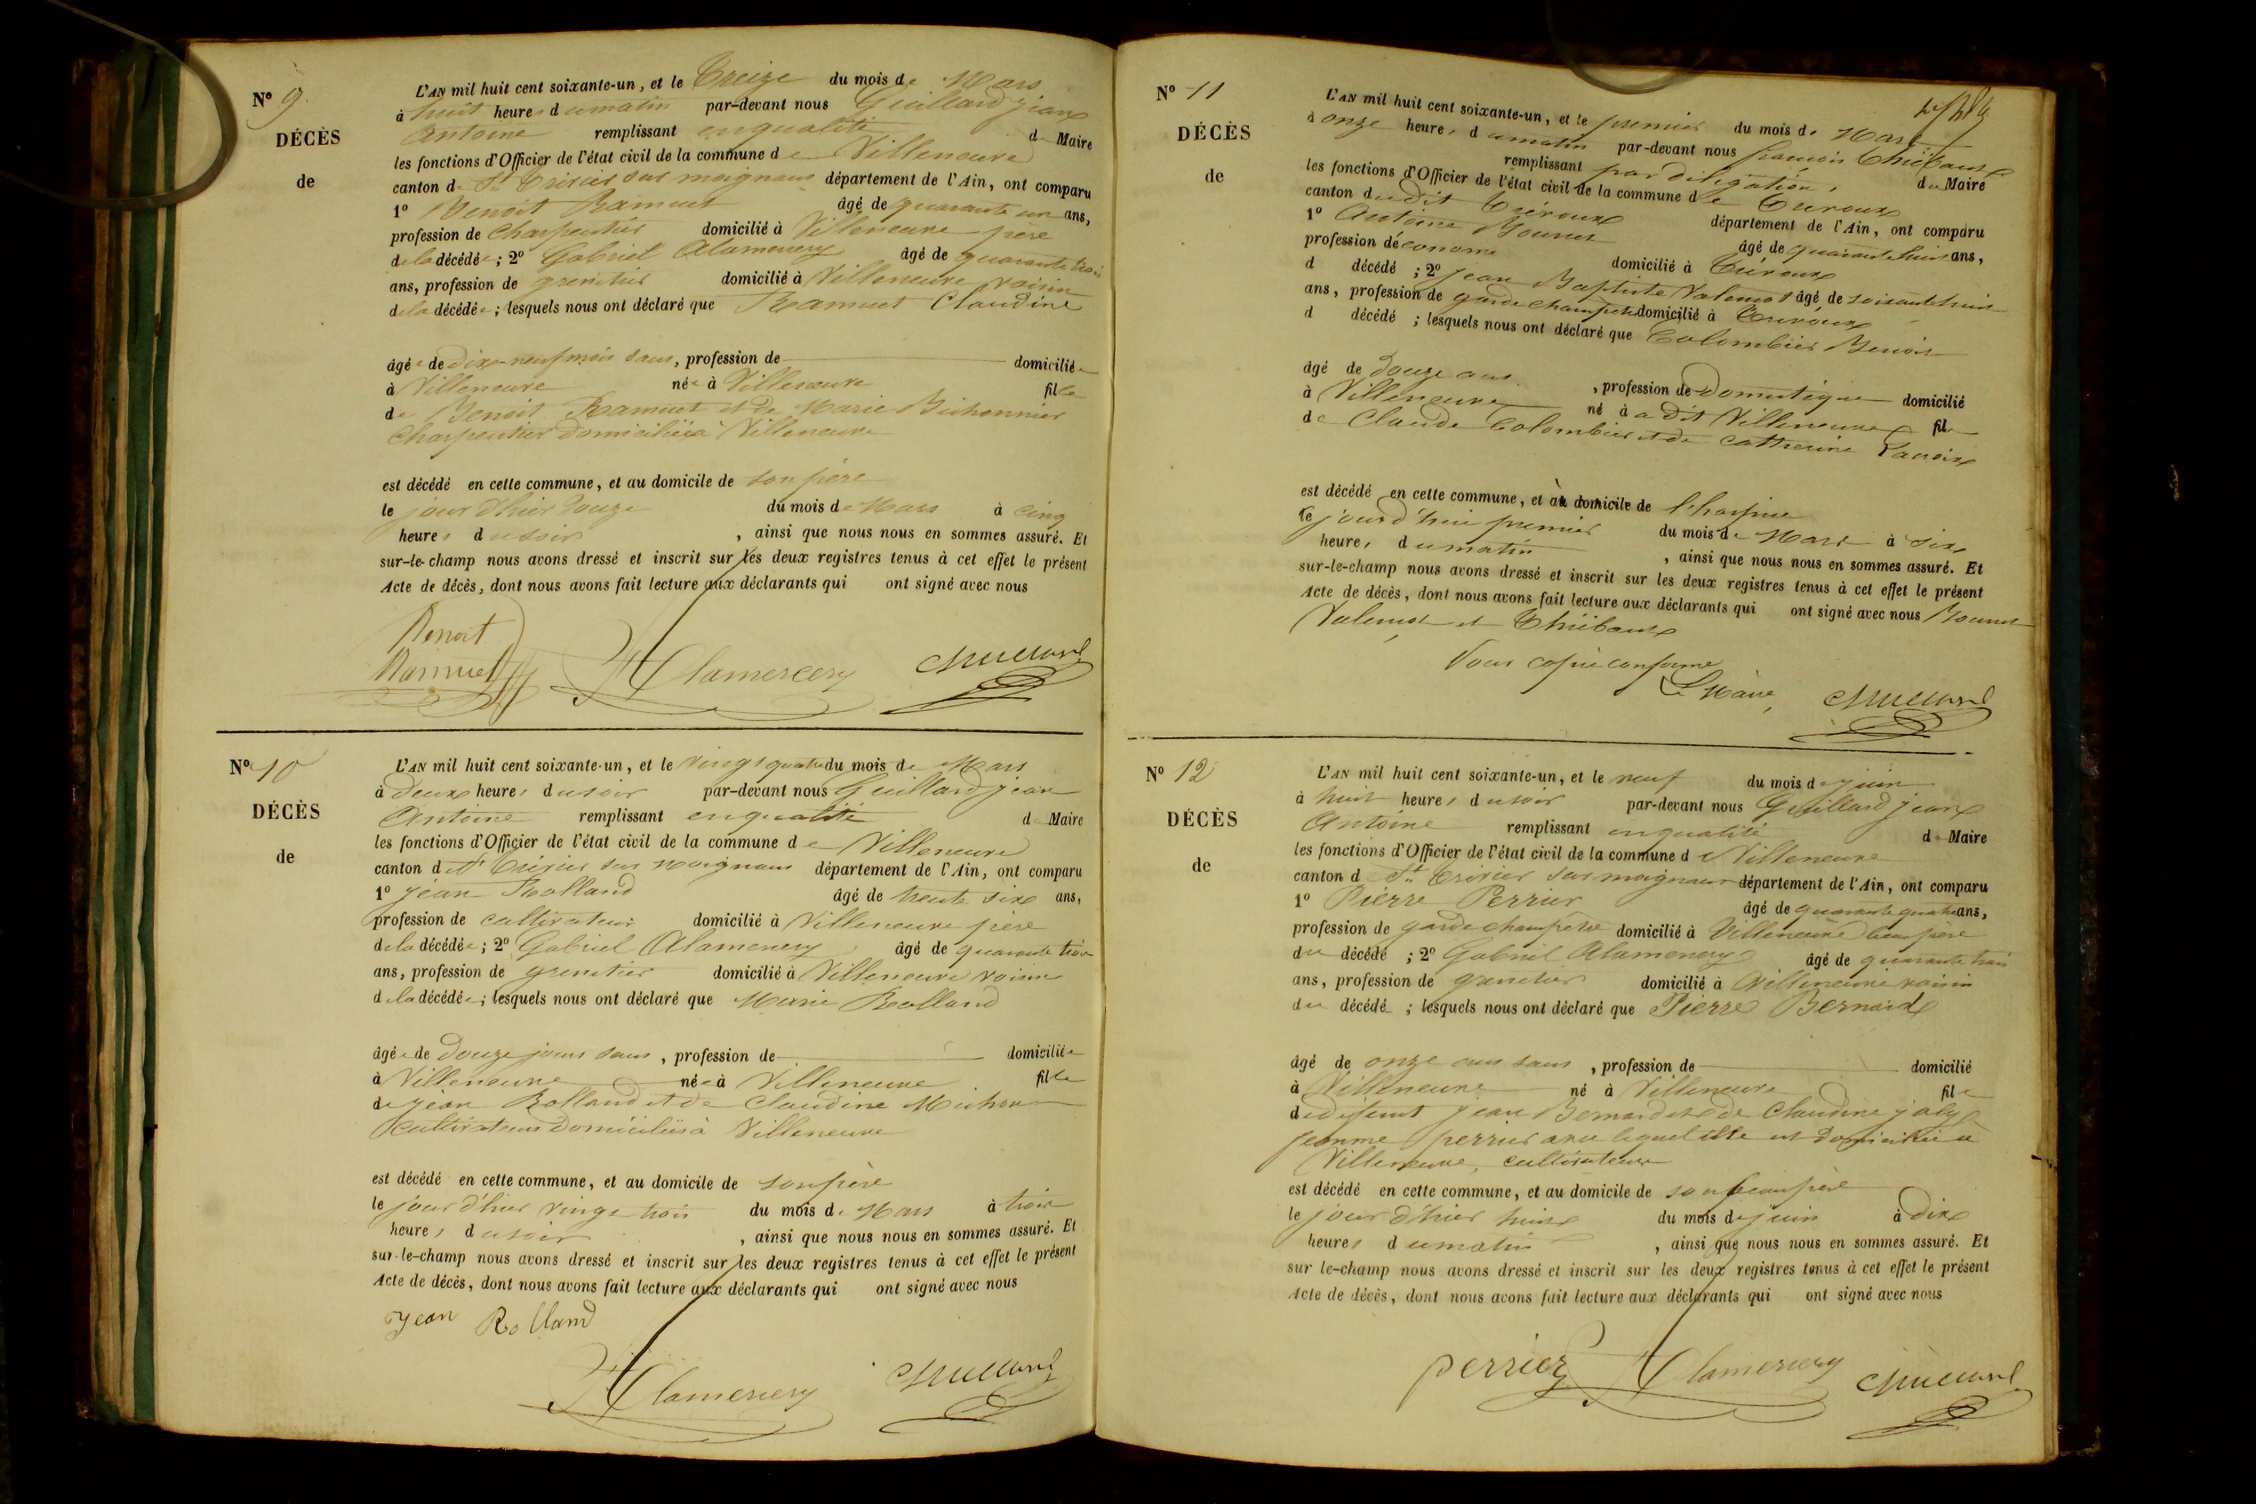 N° 9
DÉCÈS
de
L'AN mil huit cent soixante-un, et le Treize du mois de Mars
à huit heures du matin par-devant nous Guillard jean
Antoine remplissant en qualité de Maire
les fonctions d'Officier de l'état civil de la commune de Villeneuve
canton de St Trivier sur moignans département de l'Ain, ont comparu
1° Benoit Ramuet âgé de quarante un ans,
profession de charpentier domicilié à Villeneuve père
de la décédée; 2° Gabriel Alamercery âgé de quarante trois
ans, profession de grenetier domicilié à Villeneuve voisin
de la décédée; lesquels nous ont déclaré que Ramuet Claudine
âgée de dixe-neuf mois sans, profession de domiciliée
à Villeneuve née à Villeneuve fille
de Benoit Ramuet et de Marie Bichonnier
charpentier domiciliés à Villeneuve
est décédé en cette commune, et au domicile de son père
le jour d'hier douze du mois de Mars à cinq
heures du soir, ainsi que nous nous en sommes assuré. Et
sur-le-champ nous avons dressé et inscrit sur les deux registres tenus à cet effet le présent
Acte de décès, dont nous avons fait lecture aux déclarants qui ont signé avec nous
Benoit
Ramuet Alamercery Guillard
N° 10
DÉCÈS
de
L'AN mil huit cent soixante-un, et le vingt quatre du mois de Mars
à deux heures du soir par-devant nous Guillard jean
Antoine remplissant en qualité de Maire
les fonctions d'Officier de l'état civil de la commune de Villeneuve
canton de St Trivier sur moignans département de l'Ain, ont comparu
1° jean Rolland âgé de trente six ans,
profession de cultivateur domicilié à Villeneuve père
de la décédée; 2° Gabriel Alamercery âgé de quarante trois
ans, profession de grenetier domicilié à Villeneuve voisin
de la décédée; lesquels nous ont déclaré que Marie Rolland
âgée de douze jours sans, profession de domiciliée
à Villeneuve née à Villeneuve fille
de jean Rolland et de Claudine Michon
cultivateurs domiciliés à Villeneuve
est décédé en cette commune, et au domicile de son père
le jour d'hier vingt trois du mois de Mars à trois
heures du soir, ainsi que nous nous en sommes assuré. Et
sur-le-champ nous avons dressé et inscrit sur les deux registres tenus à cet effet le présent
Acte de décès, dont nous avons fait lecture aux déclarants qui ont signé avec nous
jean Rolland
Alamercery Guillard
N° 11
DÉCÈS
de
L'AN mil huit cent soixante-un, et le premier du mois de Mars
à onze heures du matin par-devant nous françois Thiébaux
remplissant par déligation, du Maire
les fonctions d'Officier de l'état civil de la commune de Trévoux
canton du dit Trévoux département de l'Ain, ont comparu
1° Antoine Bounet âgé de quarante huit ans,
profession d'économe domicilié à Trévoux
d décédé; 2° jean Baptiste Valemot âgé de soixante huit
ans, profession de garde champêtre domicilié à Trévoux
d décédé; lesquels nous ont déclaré que Colombier Benoit
âgé de douze ans, profession de Domestique domicilié
à Villeneuve né à a dit Villeneuve fils
de Claude Colombier et de Catherine
est décédé en cette commune, et à l'hospice
le jourd'hui premier du mois de Mars à six
heures du matin, ainsi que nous nous en sommes assuré. Et
sur-le-champ nous avons dressé et inscrit sur les deux registres tenus à cet effet le présent
Acte de décès, dont nous avons fait lecture aux déclarants qui ont signé avec nous Bounet
Valemot et Thiébaux
Pour copie conforme
Le Maire, Guillard
N° 12
DÉCÈS
de
L'AN mil huit cent soixante-un, et le neuf du mois de juin
à huit heures du soir par-devant nous Guillard jean
Antoine remplissant en qualité de Maire
les fonctions d'Officier de l'état civil de la commune de Villeneuve
canton de St Trivier sur moignans département de l'Ain, ont comparu
1° Pierre Perrier âgé de quarante quatre ans,
profession de garde champêtre domicilié à Villeneuve beau père
du décédé; 2° Gabriel Alamercery âgé de quarante trois
ans, profession de grenetier domicilié à Villeneuve voisin
du décédé; lesquels nous ont déclaré que Pierre Bernard
âgé de onze ans sans, profession de domicilié
à Villeneuve né à Villeneuve fils
de défunt jean Bernard et de Claudine joly
femme perrier avec lequel elle est domiciliée à
Villeneuve, cultivateurs
est décédé en cette commune, et au domicile de son beau père
le jour d'hier huit du mois de juin à dix
heures du matin, ainsi que nous nous en sommes assuré. Et
sur le-champ nous avons dressé et inscrit sur les deux registres tenus à cet effet le présent
Acte de décès, dont nous avons fait lecture aux déclarants qui ont signé avec nous
perrier Alamercery Guillard